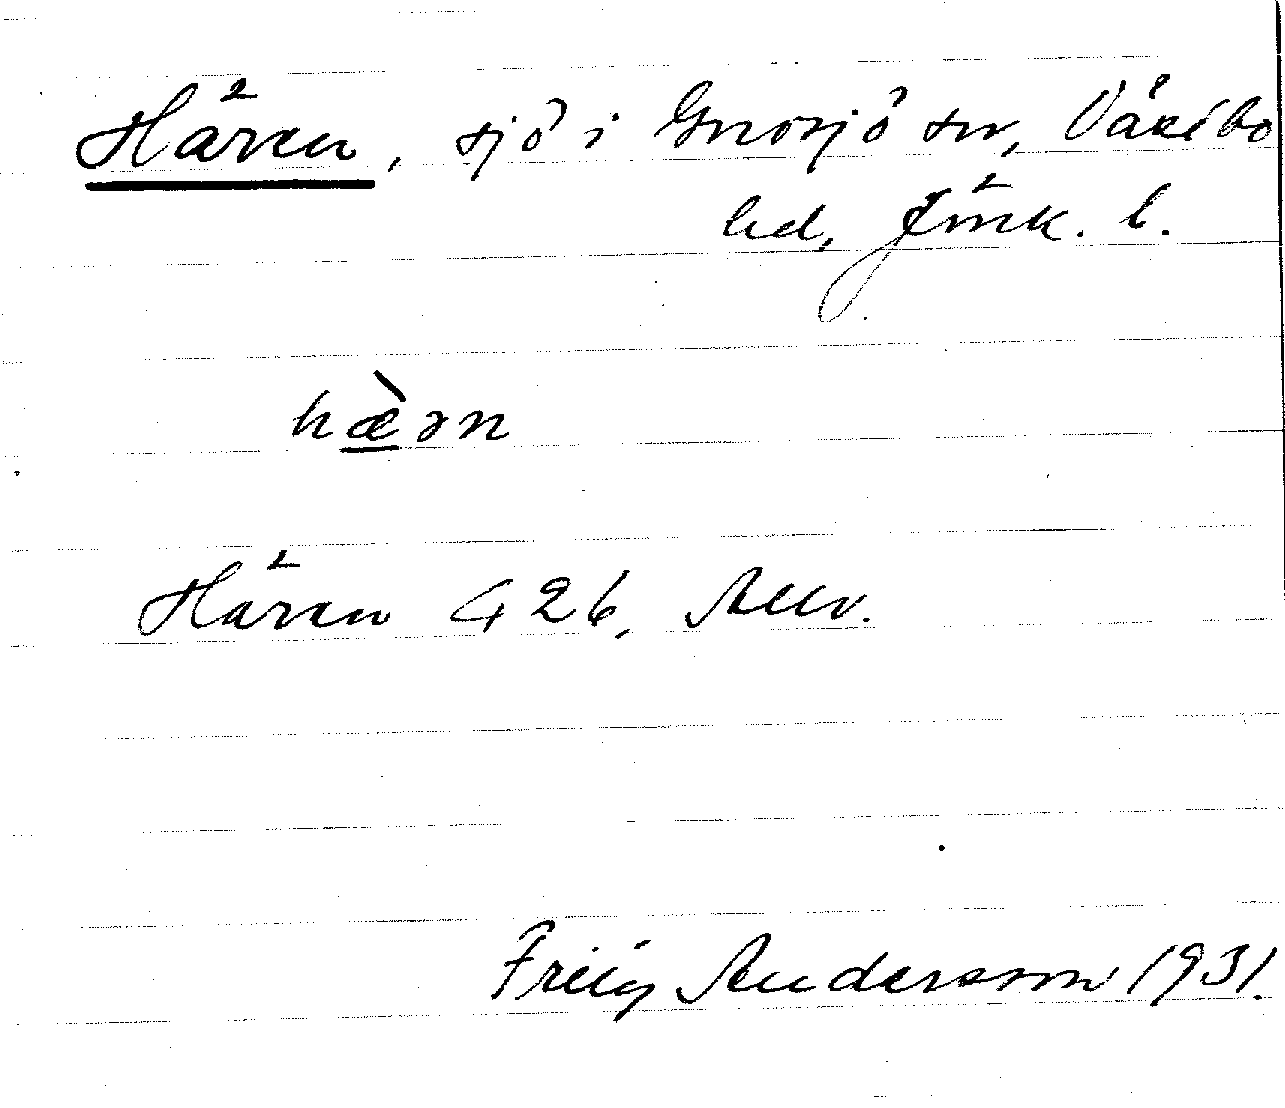 Hären, sjö i Gnosjö sn, Västbo
hd, Jönk. l.
hæ̀ən
Hären G 26, Allv.
Friig Andersson 1931.